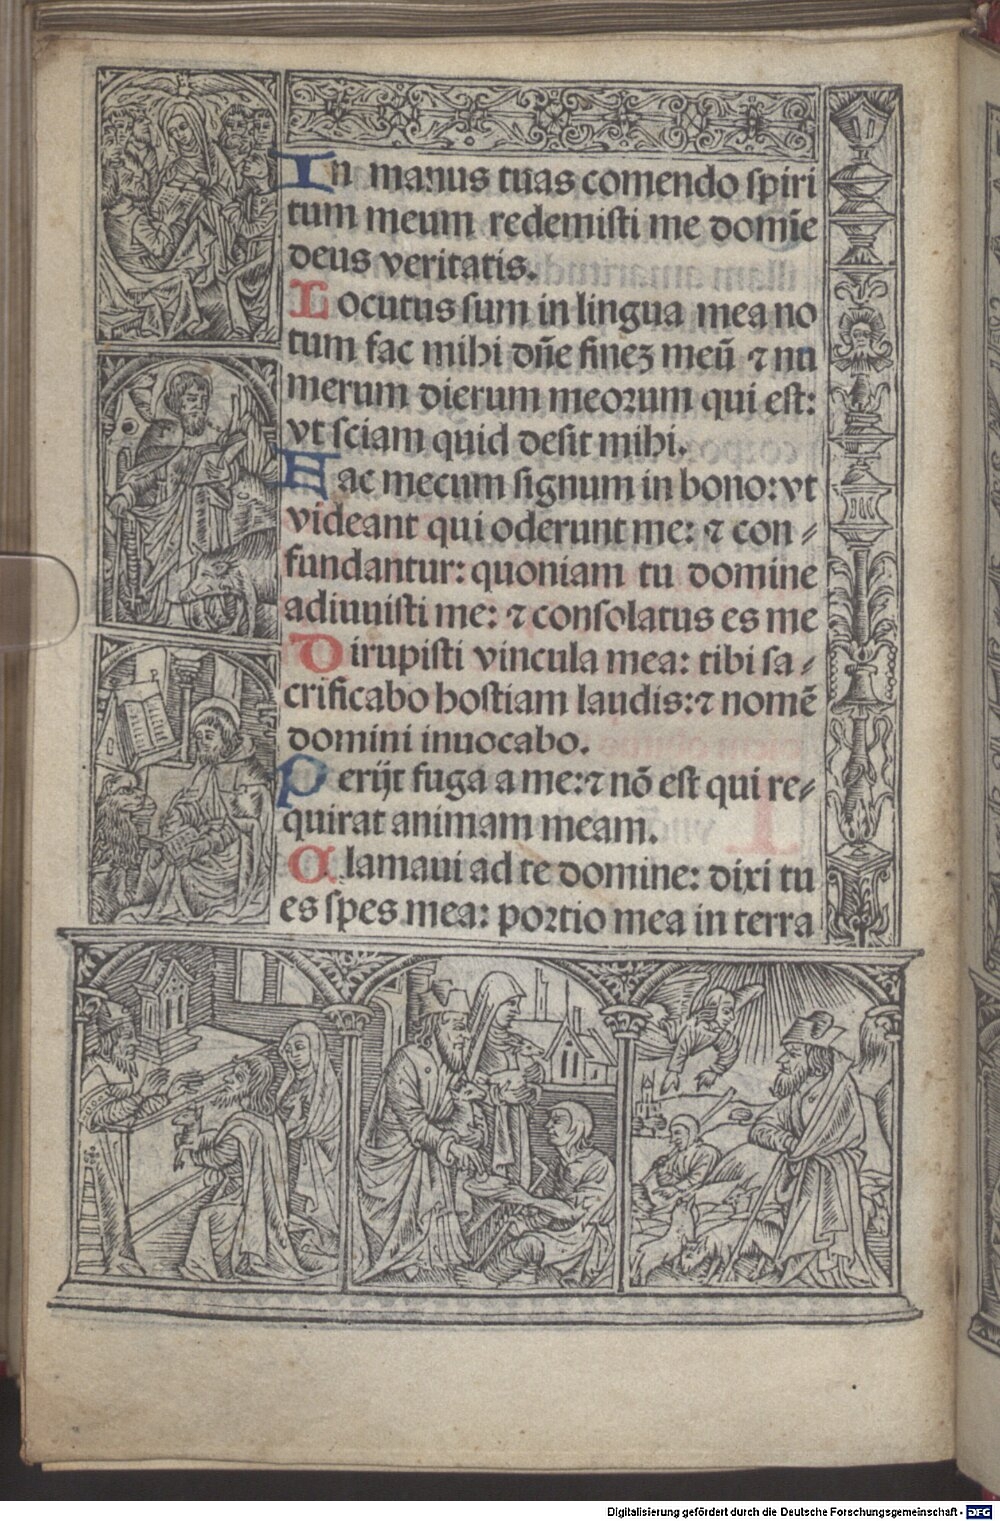 In manus tuas comendo spiri
tum meum redemisti me domĩe
deus veritatis.
Locutus sum in lingua mea no
tum fac mihi dñe finez meū ⁊ nu
merum dierum meorum qui est:
vt sciam quid desit mihi.
Fac mecum signum in bono: vt
videant qui oderunt me: ⁊ con⸗
fundantur: quoniam tu domine
adiuuisti me: ⁊ consolatus es me
Dirupisti vincula mea: tibi sa⸗
crificabo hostiam laudis: ⁊ nomē
domini inuocabo.
Perijt fuga a me: ⁊ nō est qui re⸗
quirat animam meam.
Clamaui ad te domine: dixi tu
es spes mea: portio mea in terra
Digitalisierung gefördert durch die Deutsche Forschungsgemeinschaft - DFG